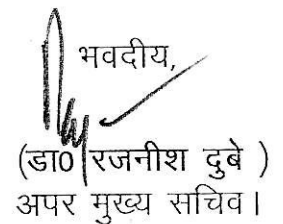 भवदीय,
(डा0 रजनीश दुबे )
अपर मुख्य सचिव।